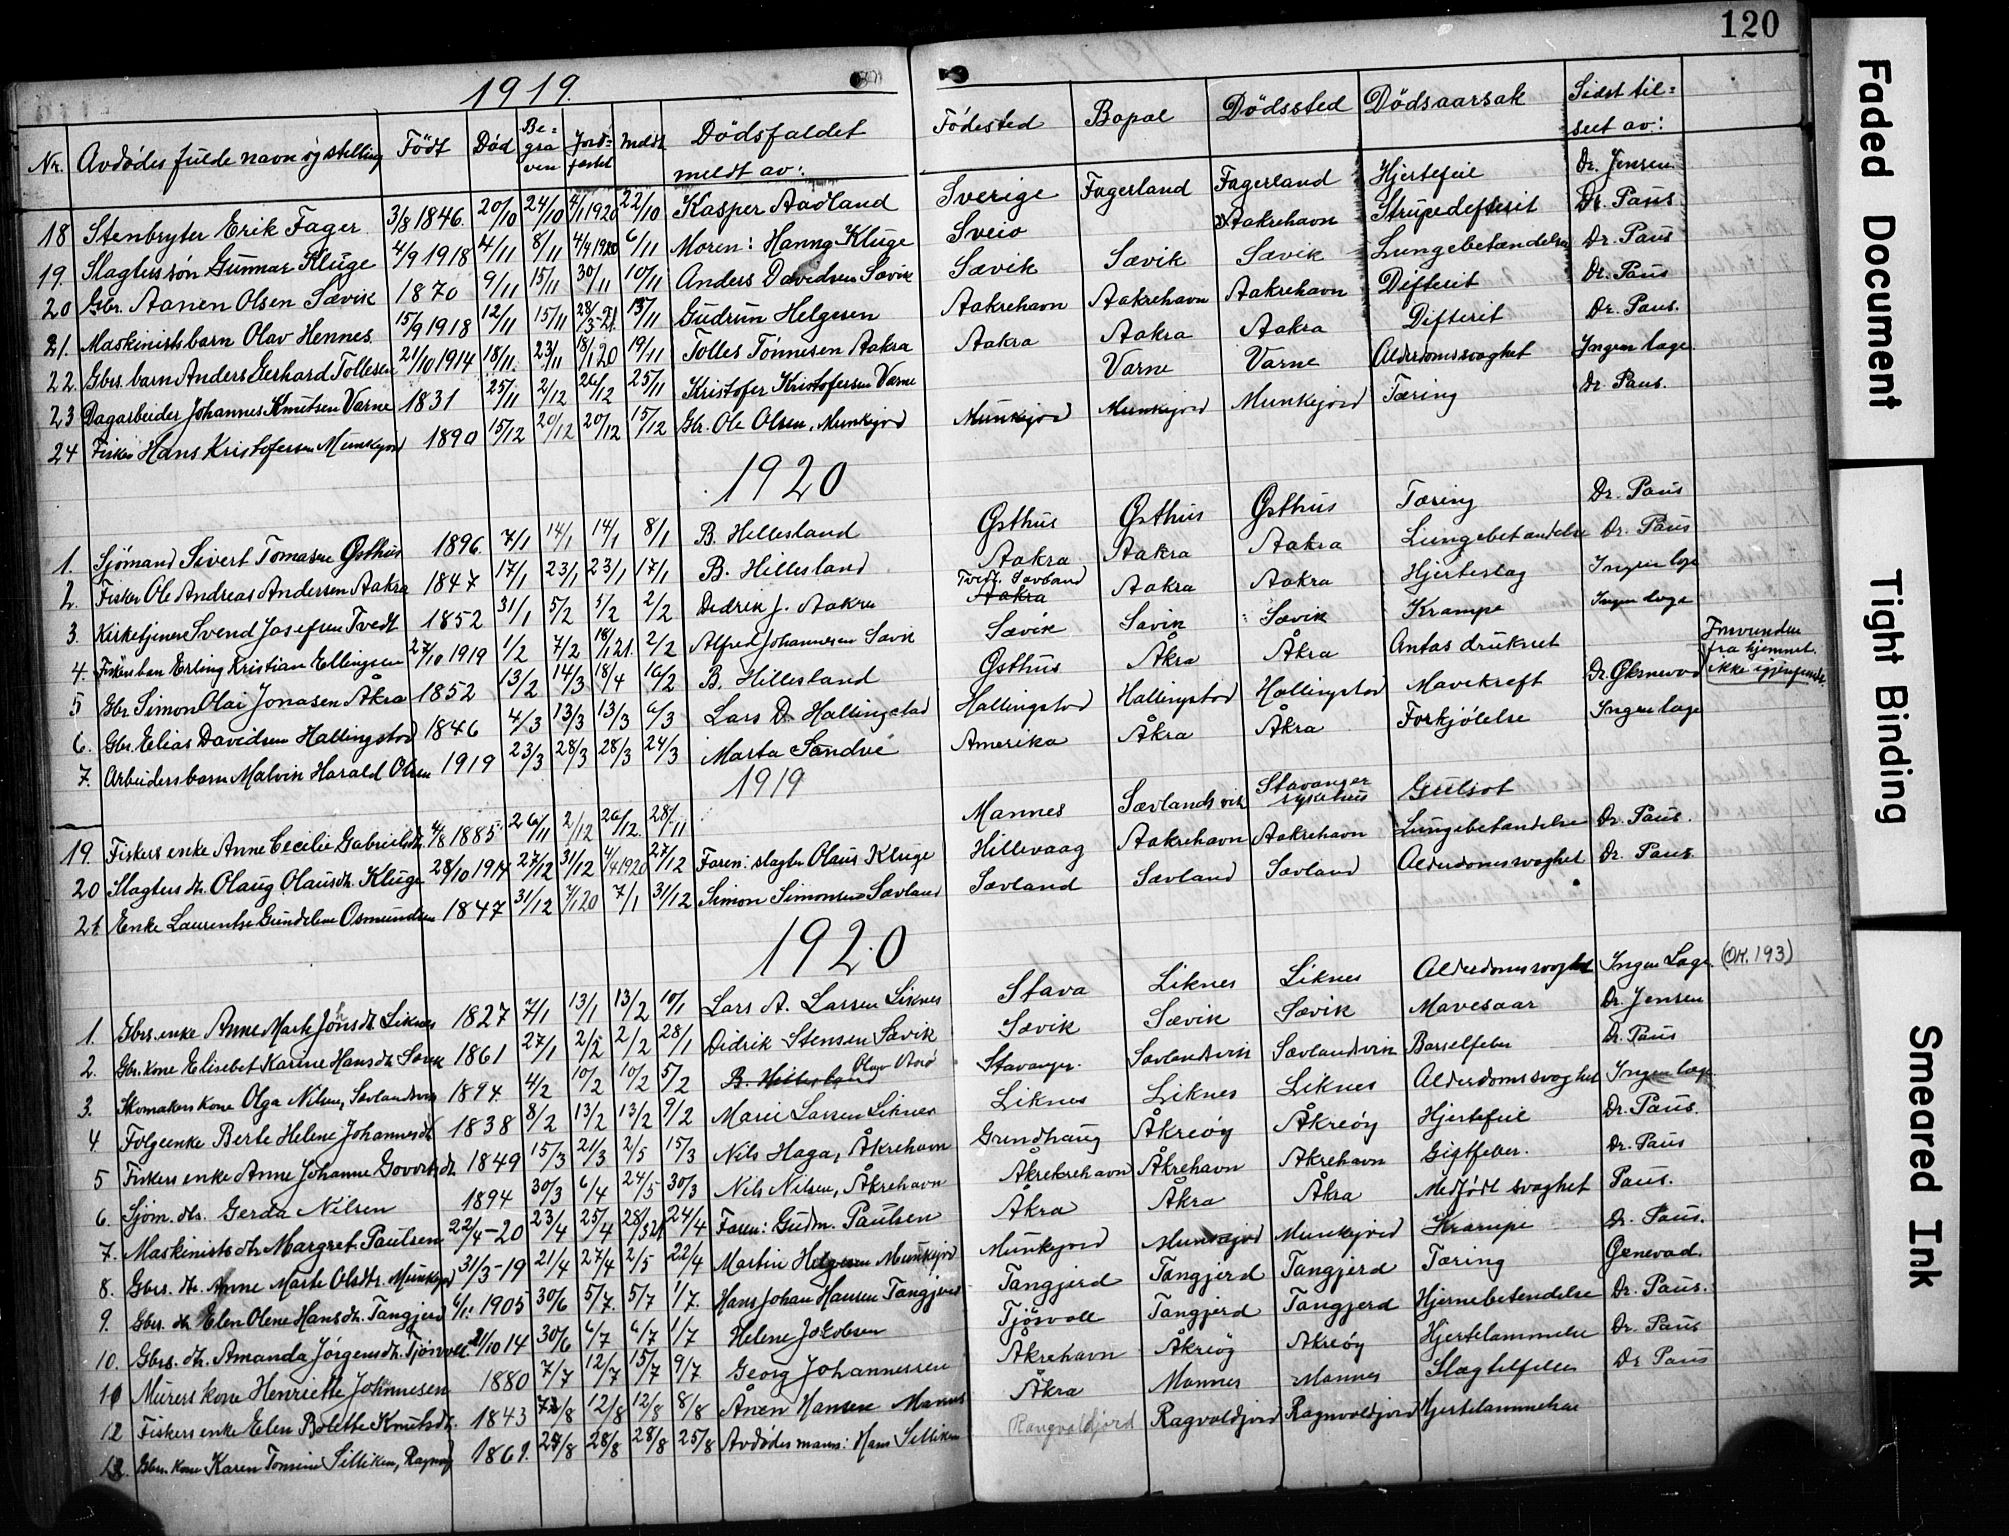 120
1919.
Nr. Avdødes fulde navn og stilling Født Død Be=gra ven Jord=fæstet Meldt Dødsfaldet meldt av: Fødested Bopæl Dødssted Dødsaarsak Sidst til=seet av:
18 Stenbryter Erik Fager 3/8 1846. 20/10 24/10 4/1 1920 22/10 Kasper Aadland Sverige Fagerland Fagerland Hjertefeil Dr. Jensen
19. Slagterssøn Gunnar Kluge 4/9 1918 4/11 8/11 4/4 1920 6/11 Moren: Hanna Kluge Sveio Aakrehavn Strupedifterit Dr. Paus
20 Gbr. Aanen Olsen Sævik 1870 9/11 15/11 30/11 10/11 Anders Davidsen Sævik Sævik Sævik Sævik Lungebetændelse Dr. Paus
21. Maskinistbarn Olav Hennes 15/9 1918 12/11 15/11 28/3-21 13/11 Gudrun Helgesen Aakrehavn Aakrehavn Aakrehavn Difterit Dr. Paus
22. Gbrs. barn Anders Gerhard Tollesen 21/10 1914 18/11. 23/11 18/1 20 19/11 Tolles Tønnesen Aakra Aakra Aakra Aakra Difterit Dr. Paus.
23 Dagarbeider Johannes Knutsen Varne 1831 25/11 2/12 26/12 25/11 Kristofer Kristofersen Varne Varne Varne Alderdomssvaghet Ingen læge
24 Fisker Hans Kristofersen Munkejord 1890 15/12 20/12 20/12 15/12 Gbr. Ole Olsen, Munkejord Munkejord Munkejord Munkejord Tæring Dr. Paus.
1920
1. Sjømand Sivert Tomasen Østhus 1896. 7/1 14/1 14/1 8/1 B. Hillesland Østhus Østhus Østhus Tæring Dr. Paus
2. Fisker Ole Andreas Andersen Aakra 1847 17/1 23/1 23/1 17/1 B. Hillesland Aakra Aakra Aakra Lungebetændelse Dr. Paus
3. Kirketjener Svend Josefsen Tvedt 1852 31/1 5/2 5/2 2/2 Didrik J. Aakra Tvedt. Sævland Aakra Aakra Aakra Hjerteslag Ingen læge
4. Erling Kristian Ellingsen 27/10 1919 1/2 7/2 18/1 21. 2/2 Alfred Johannesen Sævik Sævik Sævik Sævik Krampe Ingen læge
5 Gbr. Simon Olai Jonasen Åkra 1852 13/2 14/3 18/4 16/2 B. Hillesland Østhus Åkra Åkra Antas druknet Forsvunden fra hjemmet. ikke igjenfundet.
6. Gbr. Elias Davidsen Hallingstad 1846 4/3 13/3 13/3 6/3 Lars D. Hallingstad Hallingstad Hallingstad Hallingstad Mavekræft
7. Arbeidersbarn Malvin Harald Olsen 1919 23/3 28/3 28/3 24/3 Marta Sandve Amerika Åkra Åkra Forkjølelse Ingen læge
1919
19. Fiskers enke Anne Cecilie Gabrielsdtr. 4/8 1885 26/11 2/12 26/12. 28/11 Mannes Sævlandsvik Stavanger sykehus Gulsot
20 Slagters dtr. Olaug Olausdtr. Kluge 28/10 1914 27/12 31/12 4/4 1920 27/12 Faren: slagter Olaus Kluge Hillevaag Aakrehavn Aakrehavn Lungebetændelse Dr. Paus.
21 Enke Laurentse Gundeline Osmundsen 1847 31/12 7/1 20 7/1 31/12 Simon Simonsen Sævland Sævland Sævland Sævland Alderdomssvaghet Dr. Paus
1920
1. Gbrs. enke Anne Marte Johnsdt. Liknes 1827 7/1 13/1 13/2 10/1 Lars A. Larsen Liknes Stava Liknes Liknes Alderdomssvaghet Ingen Læge (OK. 193)
2. Gbr. kone Elisebet Karine Hansdt. Sævik 1861 27/1 2/2 2/2 28/1 Didrik Stensen Sævik Sævik Sævik Sævik Mavesaar Dr. Jensen
3. Skomakers kone Olga Nilsen, Sævlandsvik 1894 4/2 10/2 10/2 5/2 B. Hillesland Stavanger. Sævlandsvik Sævlandsvik Barselfeber Dr. Paus
4 Folgeenke Berte Helene Johannesdt. 1838 8/2 13/2 13/2 9/2 Marie Larsen Liknes Liknes Liknes Liknes Alderdomssvaghet Ingen læge
5 Fiskers enke Anne Johanne Govertsdt. 1849 15/3 21/3 2/5 15/3 Nils Haga, Åkrehavn Grindhaug Åkreøy Åkreøy Hjertefeil Dr. Paus.
6. Sjøm. dtr. Gerda Nilsen 1894 30/3 6/4 24/5 30/3 Nils Nilsen, Åkrehavn Åkrekrehavn Åkrehavn Åkrehavn Gigtfeber. Dr. Paus
7. Maskinists dtr. Margret Paulsen 22/4-20 23/4 25/4 28/3 21 24/4 Faren: Gudm. Paulsen Åkra Åkra Åkra Medfødt svaghet Paus.
8. Gbrs. dtr. Anne Marte Olsdtr. Munkejord 31/3-19 21/4 27/4 2/5 22/4 Martin Helgesen Munkejord Munkejord Munkejord Munkejord Krampe Dr. Paus.
9. Gbrs. dtr. Elen Olene Hansdt. Tangjerd 6/1. 1905 30/6 5/7. 5/7 1/7. Hans Johan Hansen Tangjerd Tangjerd Tangjerd Tangjerd Tæring Genevad.
10. Gbrs. dtr. Amanda Jørgensdt. Tjøsvoll 21/10 14 30/6 6/7 6/7 1/7 Helene Jakobsen Tjøsvoll Tangjerd Tangjerd Hjernebetendelse Dr. Paus.
11 Murers kone Henriette Johannesen 1880 7/7 12/7 15/7 9/7 Georg Johannessen Åkrehavn Åkreøy Åkreøy Hjertelammelse Dr. Paus
12 Fiskers enke Elen Bolette Knutsdt. 1843 7/8 12/8 12/8 8/8 Ånen Hansen Mannes Åkra Mannes Mannes Slagtilfelle Dr Paus
13. Gbrs. kone Karen Tomine Silliken, 1861. 24/8 28/8 28/8 25/8 Avdødes mann: Hans Silliken Rangvaldjord Ragvaldjord Ragnvaldjord Hjertelammelse
Faded Document
Tight Binding
Smeared Ink